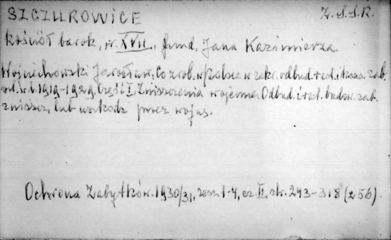 SZCZUROWICE Z.S.S.R.
kościół barok. w. XVII. fund. Jana Kazimierza
Wojciechowski Jarosław, Co zrob. w Polsce w zakr. odbud. i rest. zab.
od r. 1919-1929. Część I. Zniszczenia wojenne. Odbud. i rest. budow. zab.
zniszcz. lub uszkodz. przez wojnę.
Ochrona Zabytków. 1930/31, zesz. 1-4, cz. II, str. 243-318 (256).